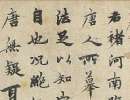 右褚河南
唐人所摹
法足以知
自也况絶
唐無疑